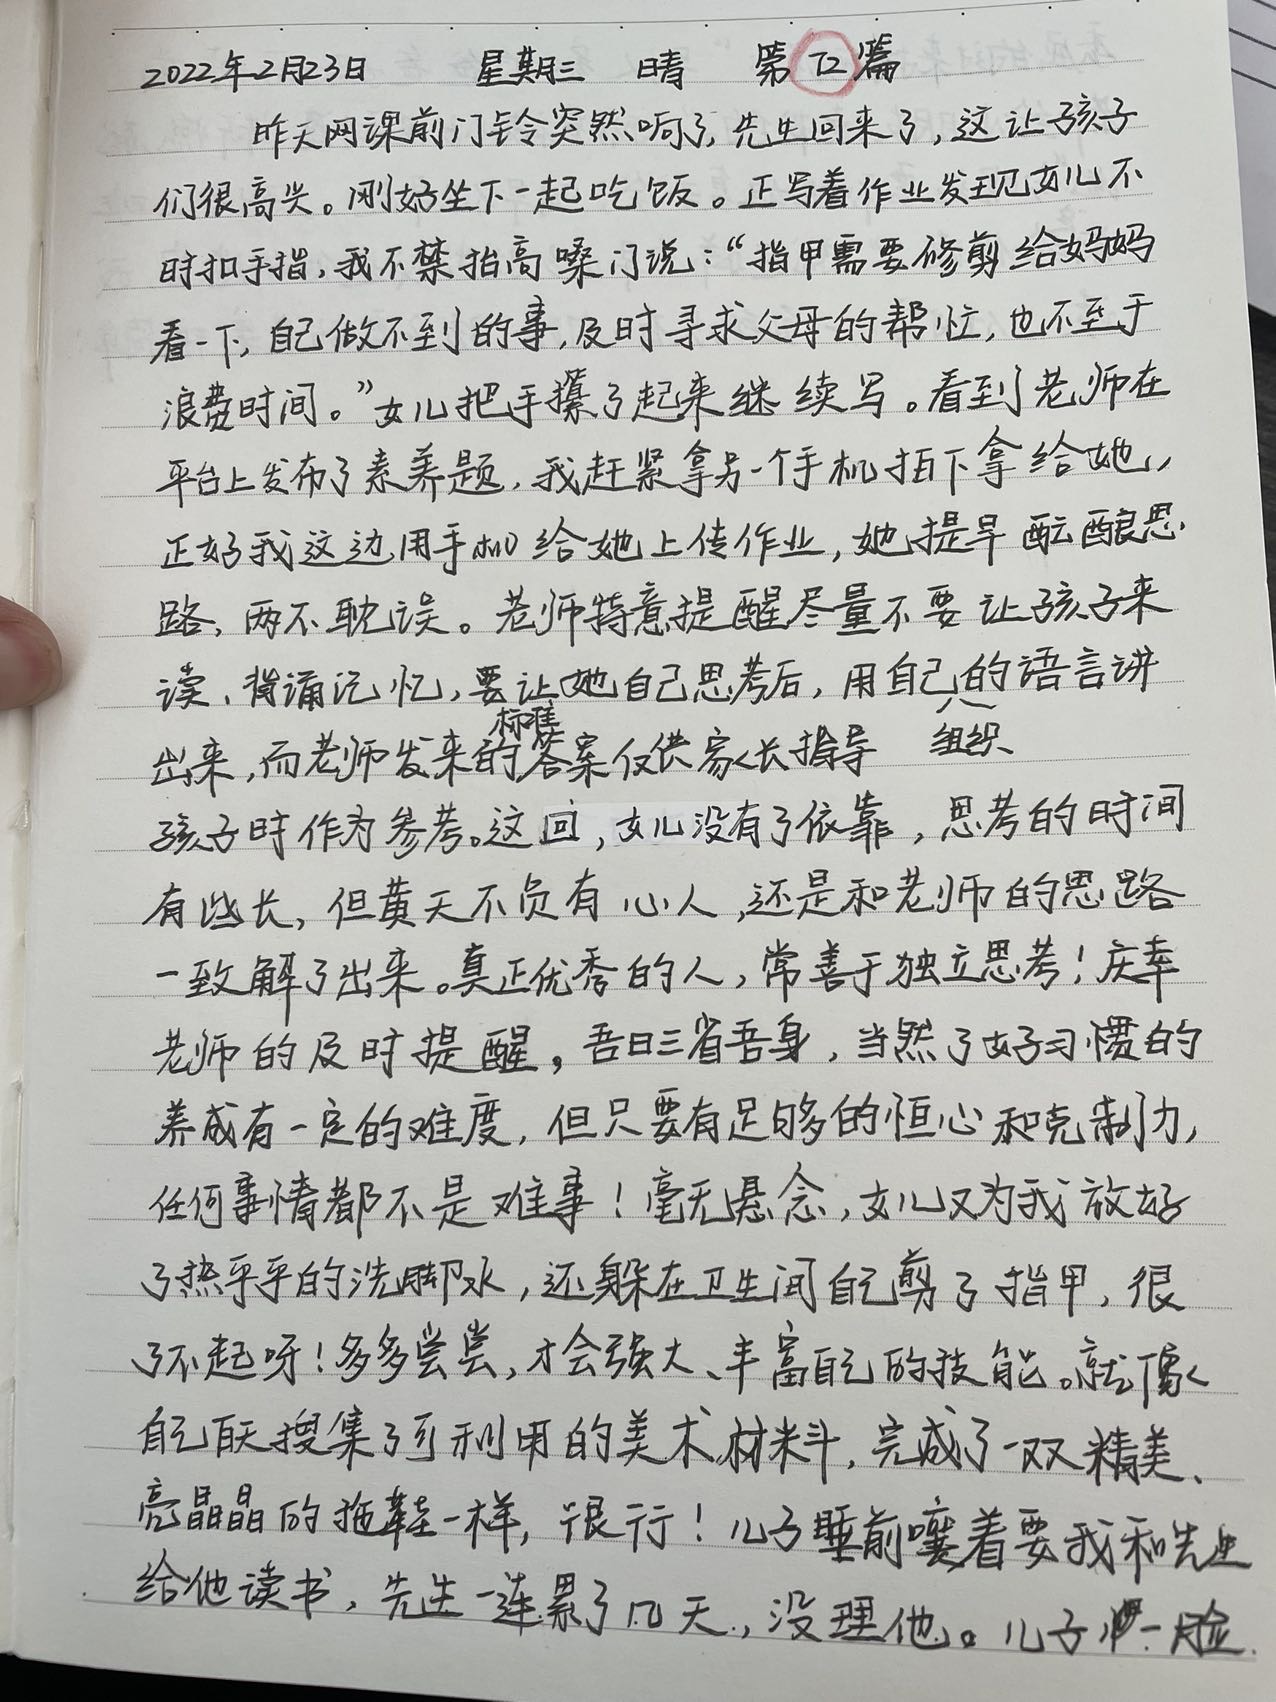 2022年2月23日 星期三 晴 第72篇
昨天网课前门铃突然响了,先生回来了,这让孩子
们很高兴。刚好坐下一起吃饭。正写着作业发现女儿不
时扣手指,我不禁抬高嗓门说:“指甲需要修剪给妈妈
看一下,自己做不到的事,及时寻求父母的帮忙,也不至于
浪费时间。”女儿把手攥了起来继续写。看到老师在
平台上发布了素养题,我赶紧拿另一个手机拍下拿给她,
正好我这边用手机给她上传作业,她提早酝酿思
路,两不耽误。老师特意提醒尽量不要让孩子来
读、背诵记忆,要让她自己思考后,用自己组织的语言讲
出来,而老师发来的标准答案仅供家长指导
孩子时作为参考。这回,女儿没有了依靠,思考的时间
有些长,但黄天不负有心人,还是和老师的思路
一致解了出来。真正优秀的人,常善于独立思考!庆幸
老师的及时提醒,吾日三省吾身,当然了好习惯的
养成有一定的难度,但只要有足够的恒心和克制力,
任何事情都不是难事!毫无悬念,女儿又为我放好
了热乎乎的洗脚水,还躲在卫生间自己剪了指甲,很
了不起呀!多多尝尝,才会强大、丰富自己的技能。就像
自己白天搜集了可利用的美术材料,完成了一双精美、
亮晶晶的拖鞋一样,很行!儿子睡前嚷着要我和先生
给他读书,先生一连累了几天,没理他。儿子一脸